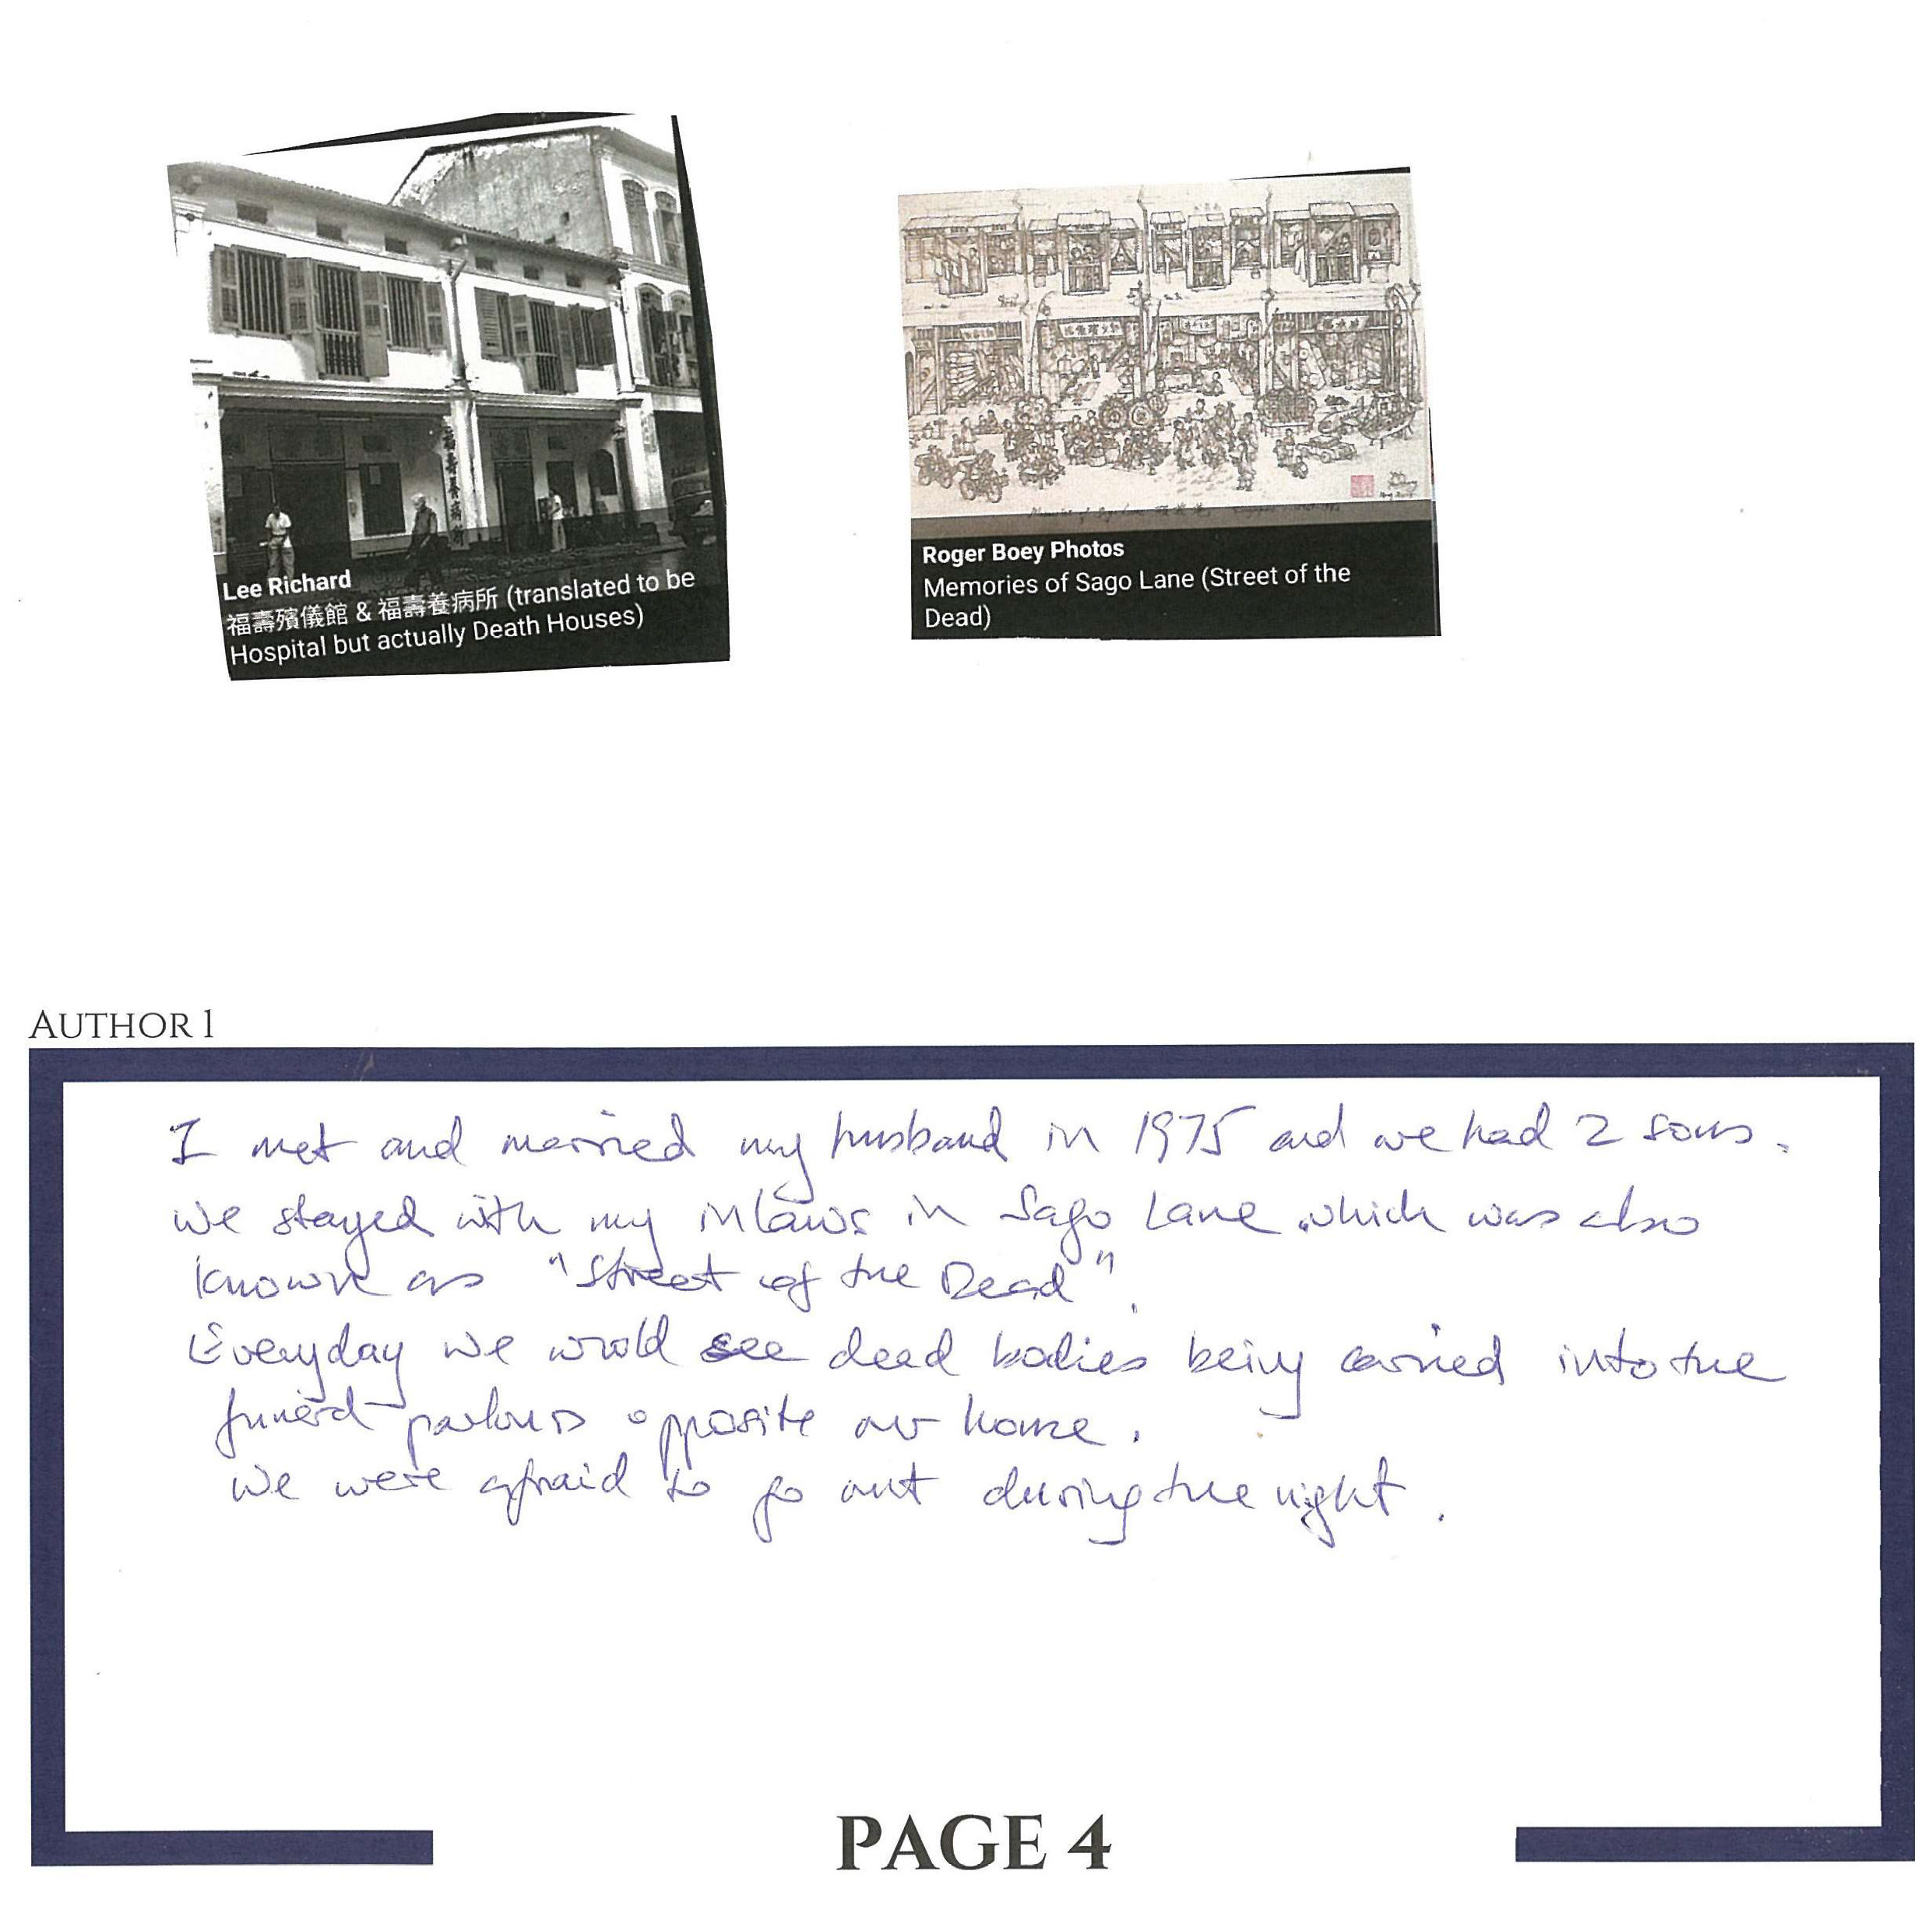 福壽養病所
Lee Richard
福壽殯儀館 & 福壽養病所 (translated to be
Hospital but actually Death Houses)
Roger Boey Photos
Memories of Sago Lane (Street of the
Dead)
AUTHOR 1
I met and married my husband in 1975 and we had 2 sons.
We stayed with my inlaws in Sago Lane which was also
known as "Street of the Dead".
Everyday we would see dead bodies being carried into the
funeral parlours opposite our home.
We were afraid to go out during the night.
PAGE 4